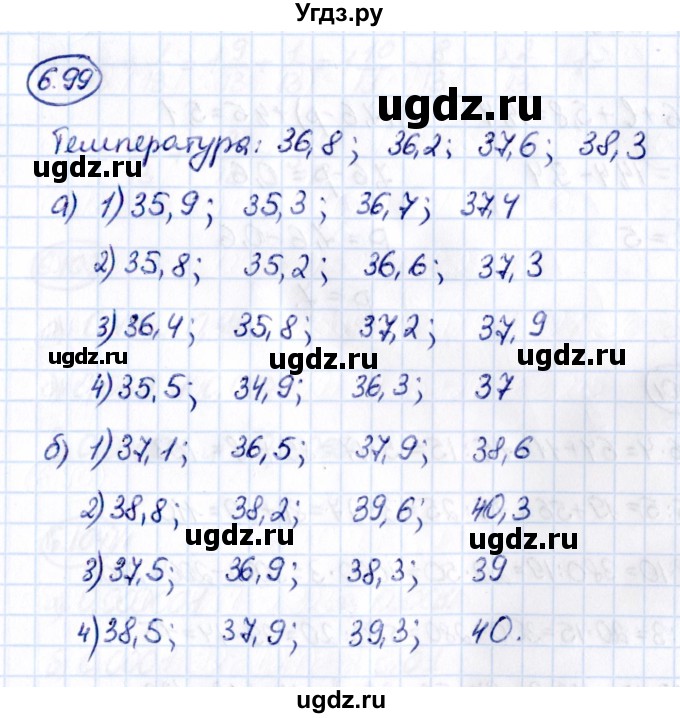 Угдз.ру
6.99
ugdz.ru
Температура: 36,8; 36,2; 37,6; 38,3
ugdz.ru
а) 1) 35,9; 35,3; 36,7; 37,4
2) 35,8; 35,2; 36,6; 37,3
3) 36,4; 35,8; 37,2; 37,9
ugdz.ru ugdz.ru ugdz.ru
4) 35,5; 34,9; 36,3; 37
б) 1) 37,1; 36,5; 37,9; 38,6
2) 38,8; 38,2; 39,6; 40,3
ugdz.ru ugdz.ru
3) 37,5; 36,9; 38,3; 39
4) 38,5; 37,9; 39,3; 40.
ugdz.ru
ugdz.ru